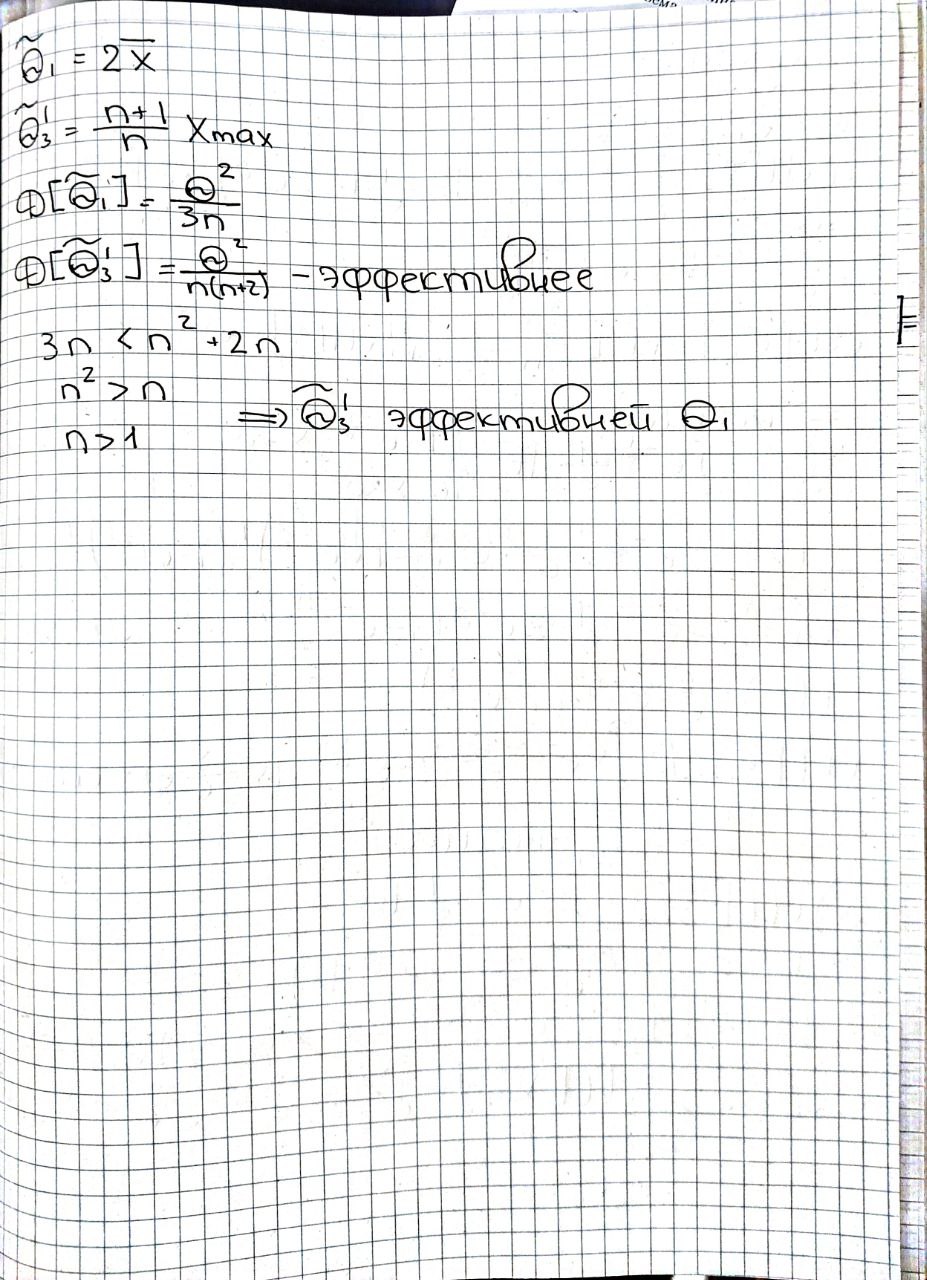 θ̃₁ = 2x̄
θ̃₃' = (n+1)/n Xmax
Ф[θ̃₁] = θ²/3n
Ф[θ̃₃'] = θ²/n(n+2) - эффективнее
3n < n² + 2n
n² > n
n > 1 ⟹ θ̃₃' эффективней θ₁